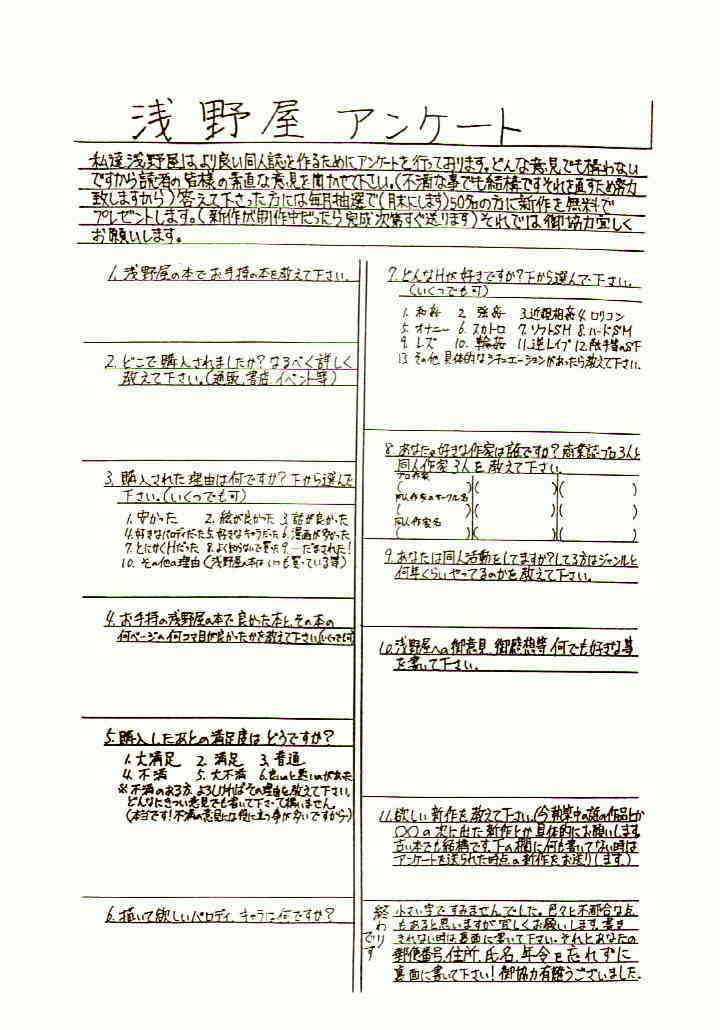 浅野屋 アンケート
私達浅野屋は、より良い同人誌を作るためにアンケートを行っております。どんな意見でも構わない
ですから読者の皆様の素直な意見を聞かせて下さい。(不満な事でも結構ですそれを直すため努力
致しますから)答えて下さった方には毎月抽選で(月末にします)50名の方に新作を無料で
プレゼントします。(新作が制作中だったら完成次第すぐ送ります)それでは御協力宜しく
お願いします。
1. 浅野屋の本でお手持の本を教えて下さい。
2. どこで購入されましたか?なるべく詳しく
教えて下さい。(通販、書店、イベント等)
3. 購入された理由は何ですか?下から選んで
下さい。(いくつでも可)
1. 安かった 2. 絵が良かった 3. 話が良かった
4. 好きなパロディだった 5. 好きなキャラだった 6. 漫画が多かった
7. とにかくHだった 8. よく知らないで買った 9. 一だまされた!
10. その他の理由(浅野屋の本はいつも買っている等)
4. お手持の浅野屋の本で良かった本と、その本の
何ページの何コマ目が良かったかを教えて下さい(いくつでも可)
5. 購入したあとの満足度はどうですか?
1. 大満足 2. 満足 3. 普通
4. 不満 5. 大不満 6. 良いのと悪いのがあった
※不満のある方、よろしければその理由を教えて下さい。
どんなにきつい意見でも書いて下さって構いません。
(本当です!不満の意見には役に立つ事が多いですから)
6. 描いて欲しいパロディ、キャラは何ですか?
7. どんなHが好きですか?下から選んで下さい。
(いくつでも可)
1. 和姦 2. 強姦 3. 近親相姦 4. ロリコン
5. オナニー 6. スカトロ 7. ソフトSM 8. ハードSM
9. レズ 10. 輪姦 11. 逆レイプ 12. 触手等のSF
13. その他 具体的なシチュエーションがあったら教えて下さい。
8. あなたの好きな作家は誰ですか?商業誌・プロ3人と
同人作家3人を教えて下さい。
プロ作家
( )( )( )
同人作家のサークル名
( )( )( )
同人作家名
( )( )( )
9. あなたは同人活動をしてますか?してる方はジャンルと
何年くらいやってるのかを教えて下さい。
10. 浅野屋への御意見、御感想等 何でも好きな事
を書いて下さい。
11. 欲しい新作を教えて下さい。(今執筆中の話の作品とか
〇〇の次に出た新作とか具体的にお願いします
古い本でも結構です。下の欄に何も書いてない時は
アンケートを送られた時点の新作をお送りします。)
小さい字ですみませんでした。色々と不都合な点
もあると思いますが宜しくお願いします。書き
きれない時は裏面に書いて下さい。それとあなたの
郵便番号、住所、氏名、年令を忘れずに
裏面に書いて下さい!御協力有難うございました。
終わりです